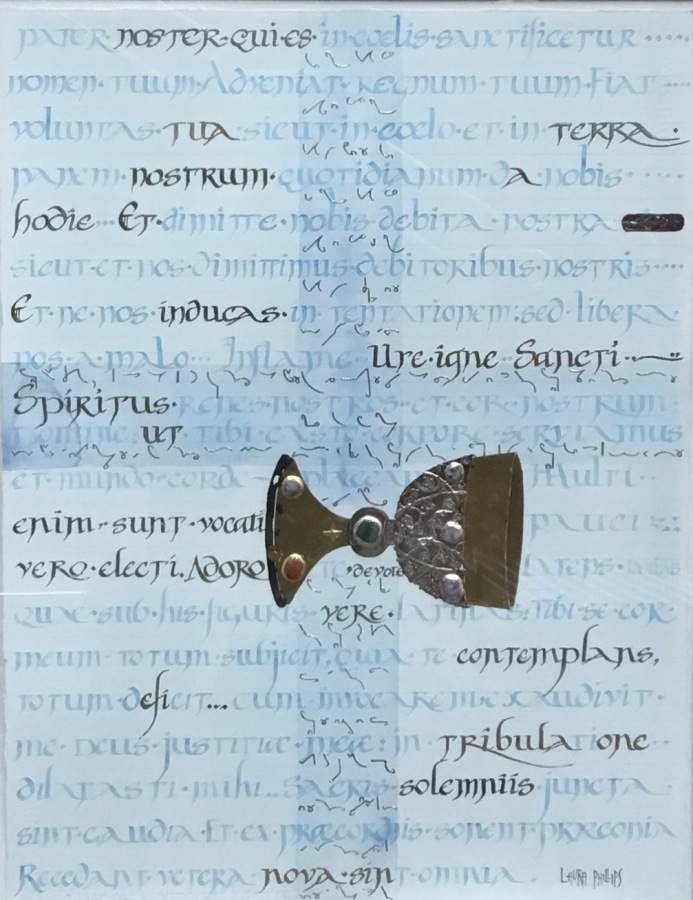 pater·noster·qui·es·in·coelis·sanctificetur·····
nomen·tuum·Adveniat·regnum·tuum·Fiat····
voluntas·tua·sicut·in·coelo·et·in·terra.
panem·nostrum·quotidianum·da·nobis·····
hodie···Et·dimitte·nobis·debita·nostra
sicut·et·nos·dimittimus·debitoribus·nostris····
Et·ne·nos·inducas·in·tentationem:sed·libera·
nos·a·malo... Inflame Ure·igne·Sancti··
Spiritus·renes·nostros··et·cor·nostrum
Domine ut tibi casto corpore serviamus
et·mundo·corde placeamus Multi··
enim··sunt·vocati pauci
vero·electi.Adoro devote latens
quae·sub·his·figuris vere·latitas:Tibi·se·cor
meum·totum·subjicit,quia·te contemplans,
totum·deficit... cum invocarem·exaudivit·
me·Deus·justitiae·meae:in·tribulatione··
dilatasti·mihi...Sacris solemniis juncta
sint·gaudia·Et·ex·præcordiis·sonent·præconia
Recedant·vetera·nova·sint·omnia.
Laura Phillips